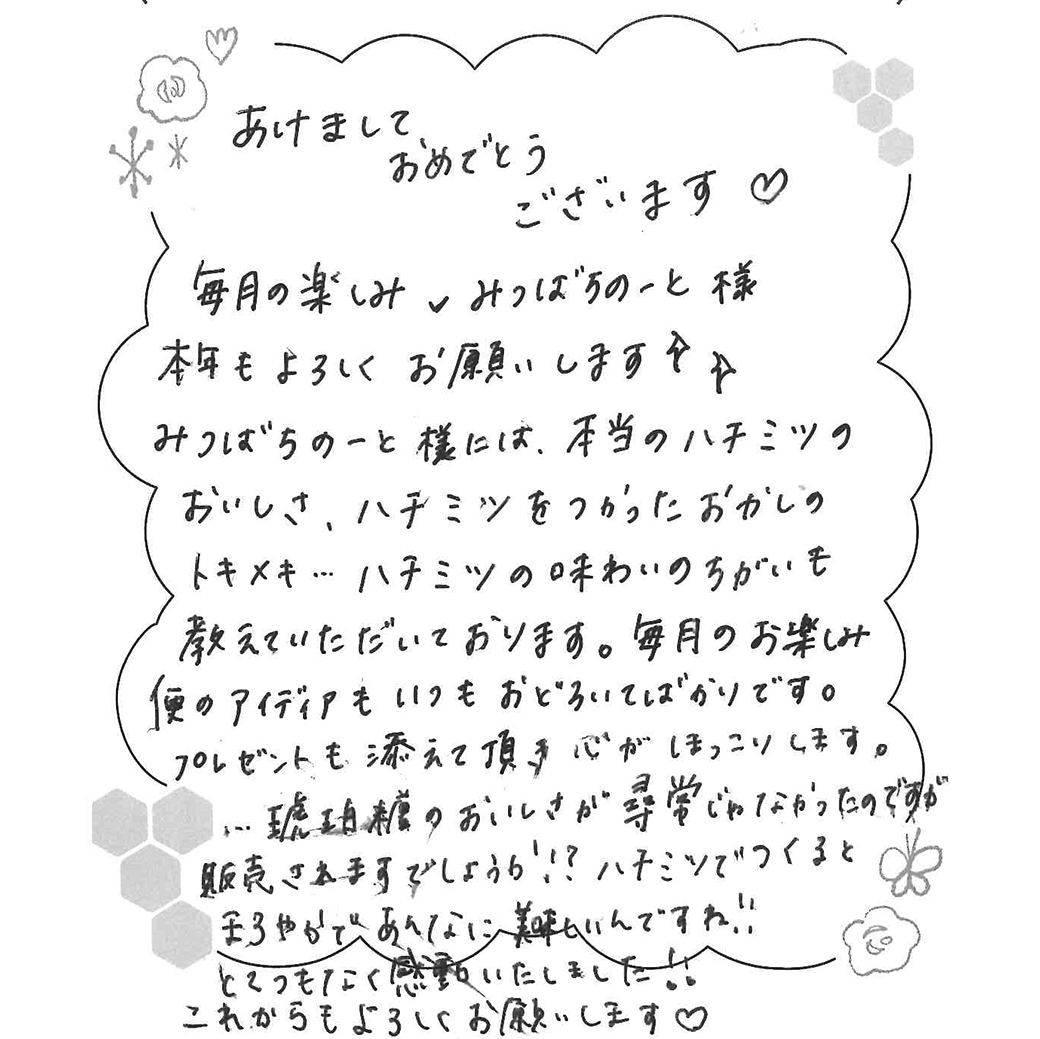 あけまして
おめでとう
ございます♡
毎月の楽しみ✓みつばちのーと様
本年もよろしくお願いします
みつばちのーと様には、本当のハチミツの
おいしさ、ハチミツをつかったおかしの
トキメキ…ハチミツの味わいのちがいも
教えていただいております。毎月のお楽しみ
便のアイディアもいつもおどろいてばかりです。
プレゼントも添えて頂き心がほっこりします。
…琥珀糖のおいしさが尋常じゃなかったのですが
販売されますでしょうか!!?ハチミツでつくると
まろやかであんなに美味しいんですね!!
とてつもなく感動いたしました!!
これからもよろしくお願いします♡